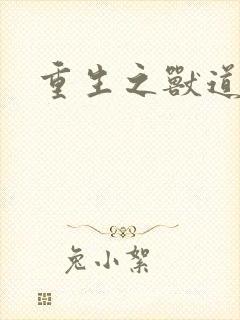 重生之獸道
兔小絮